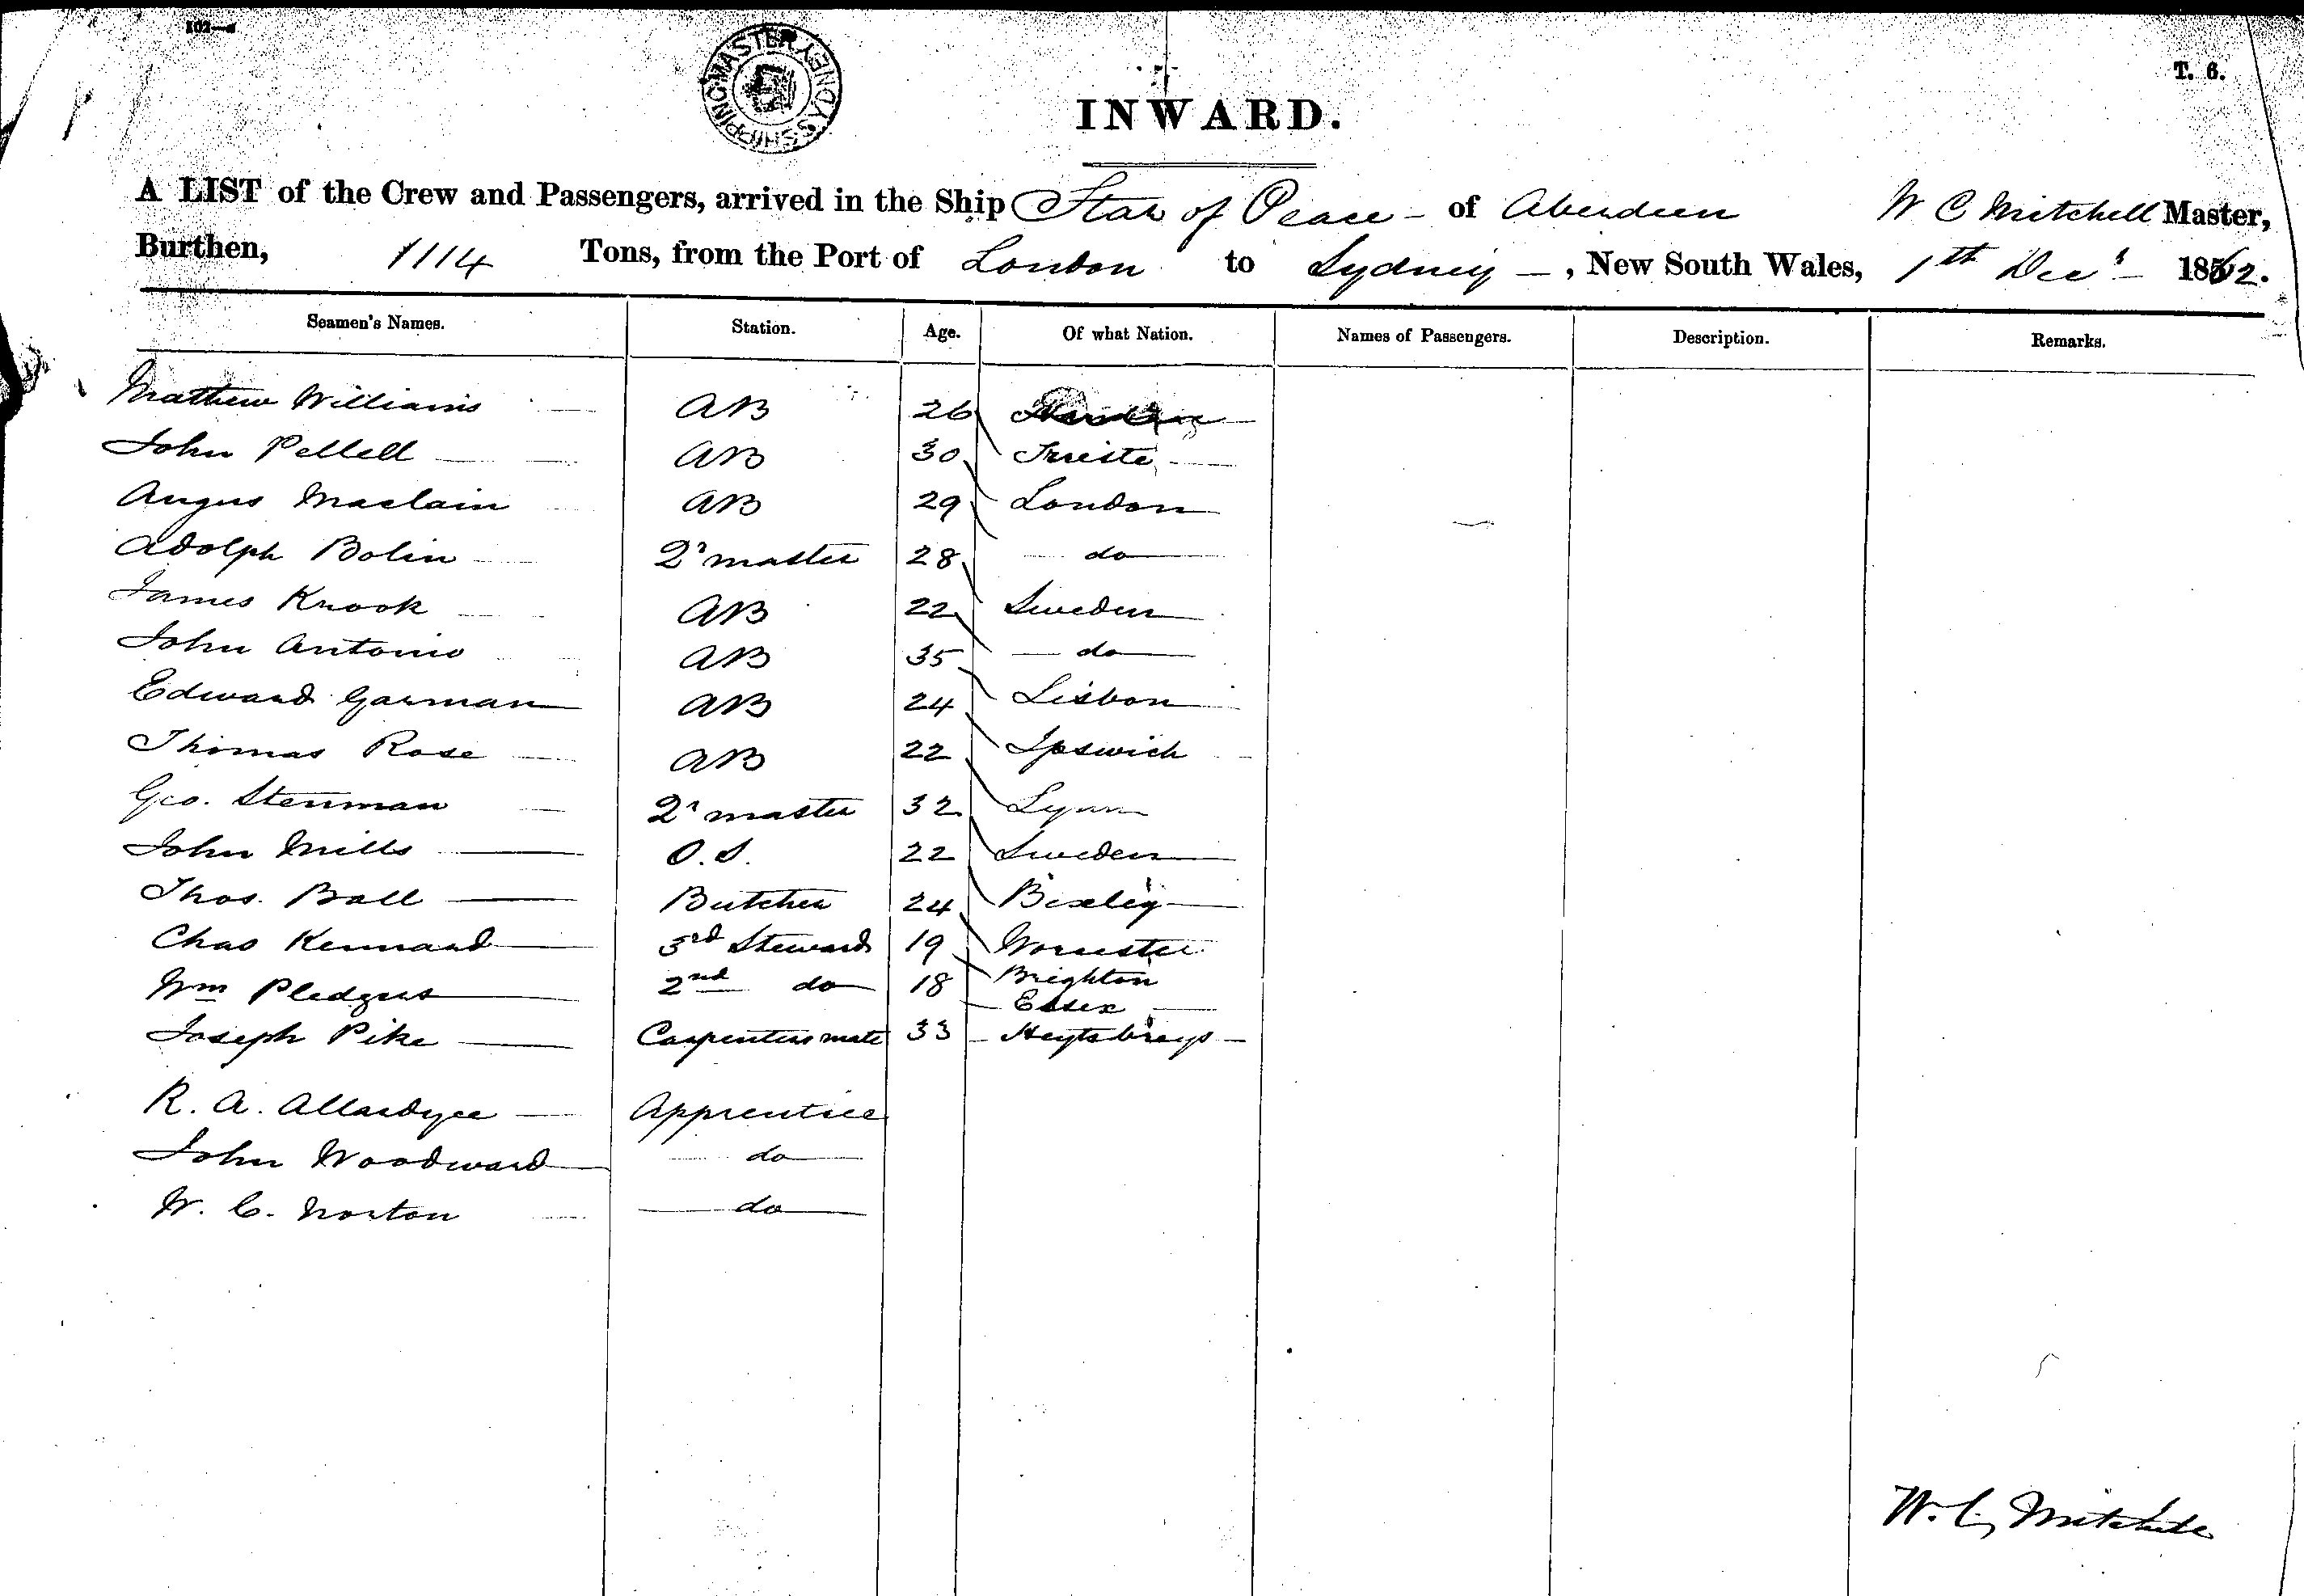 102—a
SHIPPING MASTER SYDNEY
T. 6.
INWARD.
A LIST of the Crew and Passengers, arrived in the Ship Star of Peace - of Aberdeen W C Mitchell Master,
Burthen, 1114 Tons, from the Port of London to Sydney -, New South Wales, 1th Decr - 1862.
Seamen's Names. Station. Age. Of what Nation. Names of Passengers. Description. Remarks.
Mathew Williams AB 26
John Pellell AB 30 Trieste
Angus Maclain AB 29 London
Adolph Bolin Qr master 28 do
James Krook AB 22 Sweden
John Antonio AB 35 do
Edward Garman AB 24 Lisbon
Thomas Rose AB 22 Ipswich
Geo. Stenman Qr master 32 Lynn
John Mills O.S. 22 Sweden
Thos. Ball Butcher 24 Bexley
Chas Kennard 3rd Steward 19 Worcester
Wm Pledger 2nd do 18 Brighton
Essex
Joseph Pike Carpenters mate 33 Heytsbrays
R. A. Allardyce Apprentice
John Woodward do
W. C. Norton do
W. C. Mitchell